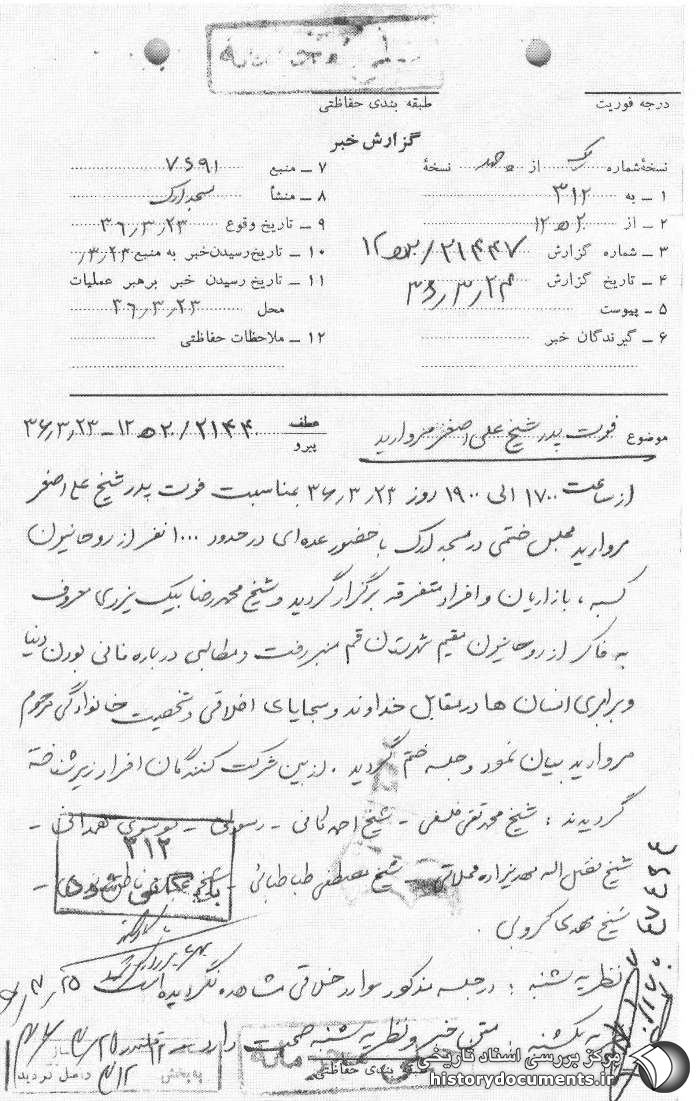 خیلی محرمانه
درجه فوریت
طبقه بندی حفاظتی
گزارش خبر
نسخهٔ شماره یک از چهار نسخهٔ
۱ - به ۳۱۲
۲ - از ۲۰ ه ۱۲
۳ - شماره گزارش
۴ - تاریخ گزارش ۳۶/۳/۲۴
۵ - پیوست
۶ - گیرندگان خبر
۷ - منبع ۷۶۹۱
۸ - منشأ مسجد ارک
۹ - تاریخ وقوع ۳۶/۳/۲۳
۱۰ - تاریخ رسیدن خبر به منبع ۳/۲۳
۱۱ - تاریخ رسیدن خبر برهبر عملیات
محل ۳۶/۳/۲۳
۱۲ - ملاحظات حفاظتی
موضوع فوت پدر شیخ علی اصغر مروارید
عطف
پیرو
۲۰ ه ۱۲ - ۳۶/۳/۲۳
از ساعت ۱۷۰۰ الی ۱۹۰۰ روز ۳۶/۳/۲۳ بمناسبت فوت پدر شیخ علی اصغر
مروارید مجلس ختمی در مسجد ارک با حضور عده ای در حدود ۱۰۰۰ نفر از روحانیون
کسبه ، بازاریان و افراد متفرقه برگزار گردید و شیخ محمدرضا بیک یزدی معروف
به فاکر از روحانیون مقیم شهرستان قم منبر رفت و مطالبی درباره فانی بودن دنیا
و برابری انسان ها در مقابل خداوند و سجایای اخلاقی و شخصیت خانوادگی مرحوم
مروارید بیان نمود و جلسه ختم گردید . از بین شرکت کنندگان افراد زیر شناخته
گردیدند : شیخ محمد تقی فلسفی - شیخ احمد کافی - رسولی - موسوی همدانی -
شیخ فضل اله مهدیزاده محلاتی - شیخ مصطفی طباطبائی - شیخ
شیخ مهدی کروبی .
۳۱۲
بایگانی شود
نظریه شنبه : در جلسه مذکور موارد خلافی مشاهده نگردیده است
نظریه یکشنبه . متن خبر و نظریه شنبه صحت دارد
طبقه بندی حفاظتی
خیلی محرمانه
به بخش
مرکز بررسی اسناد تاریخی
historydocuments.ir